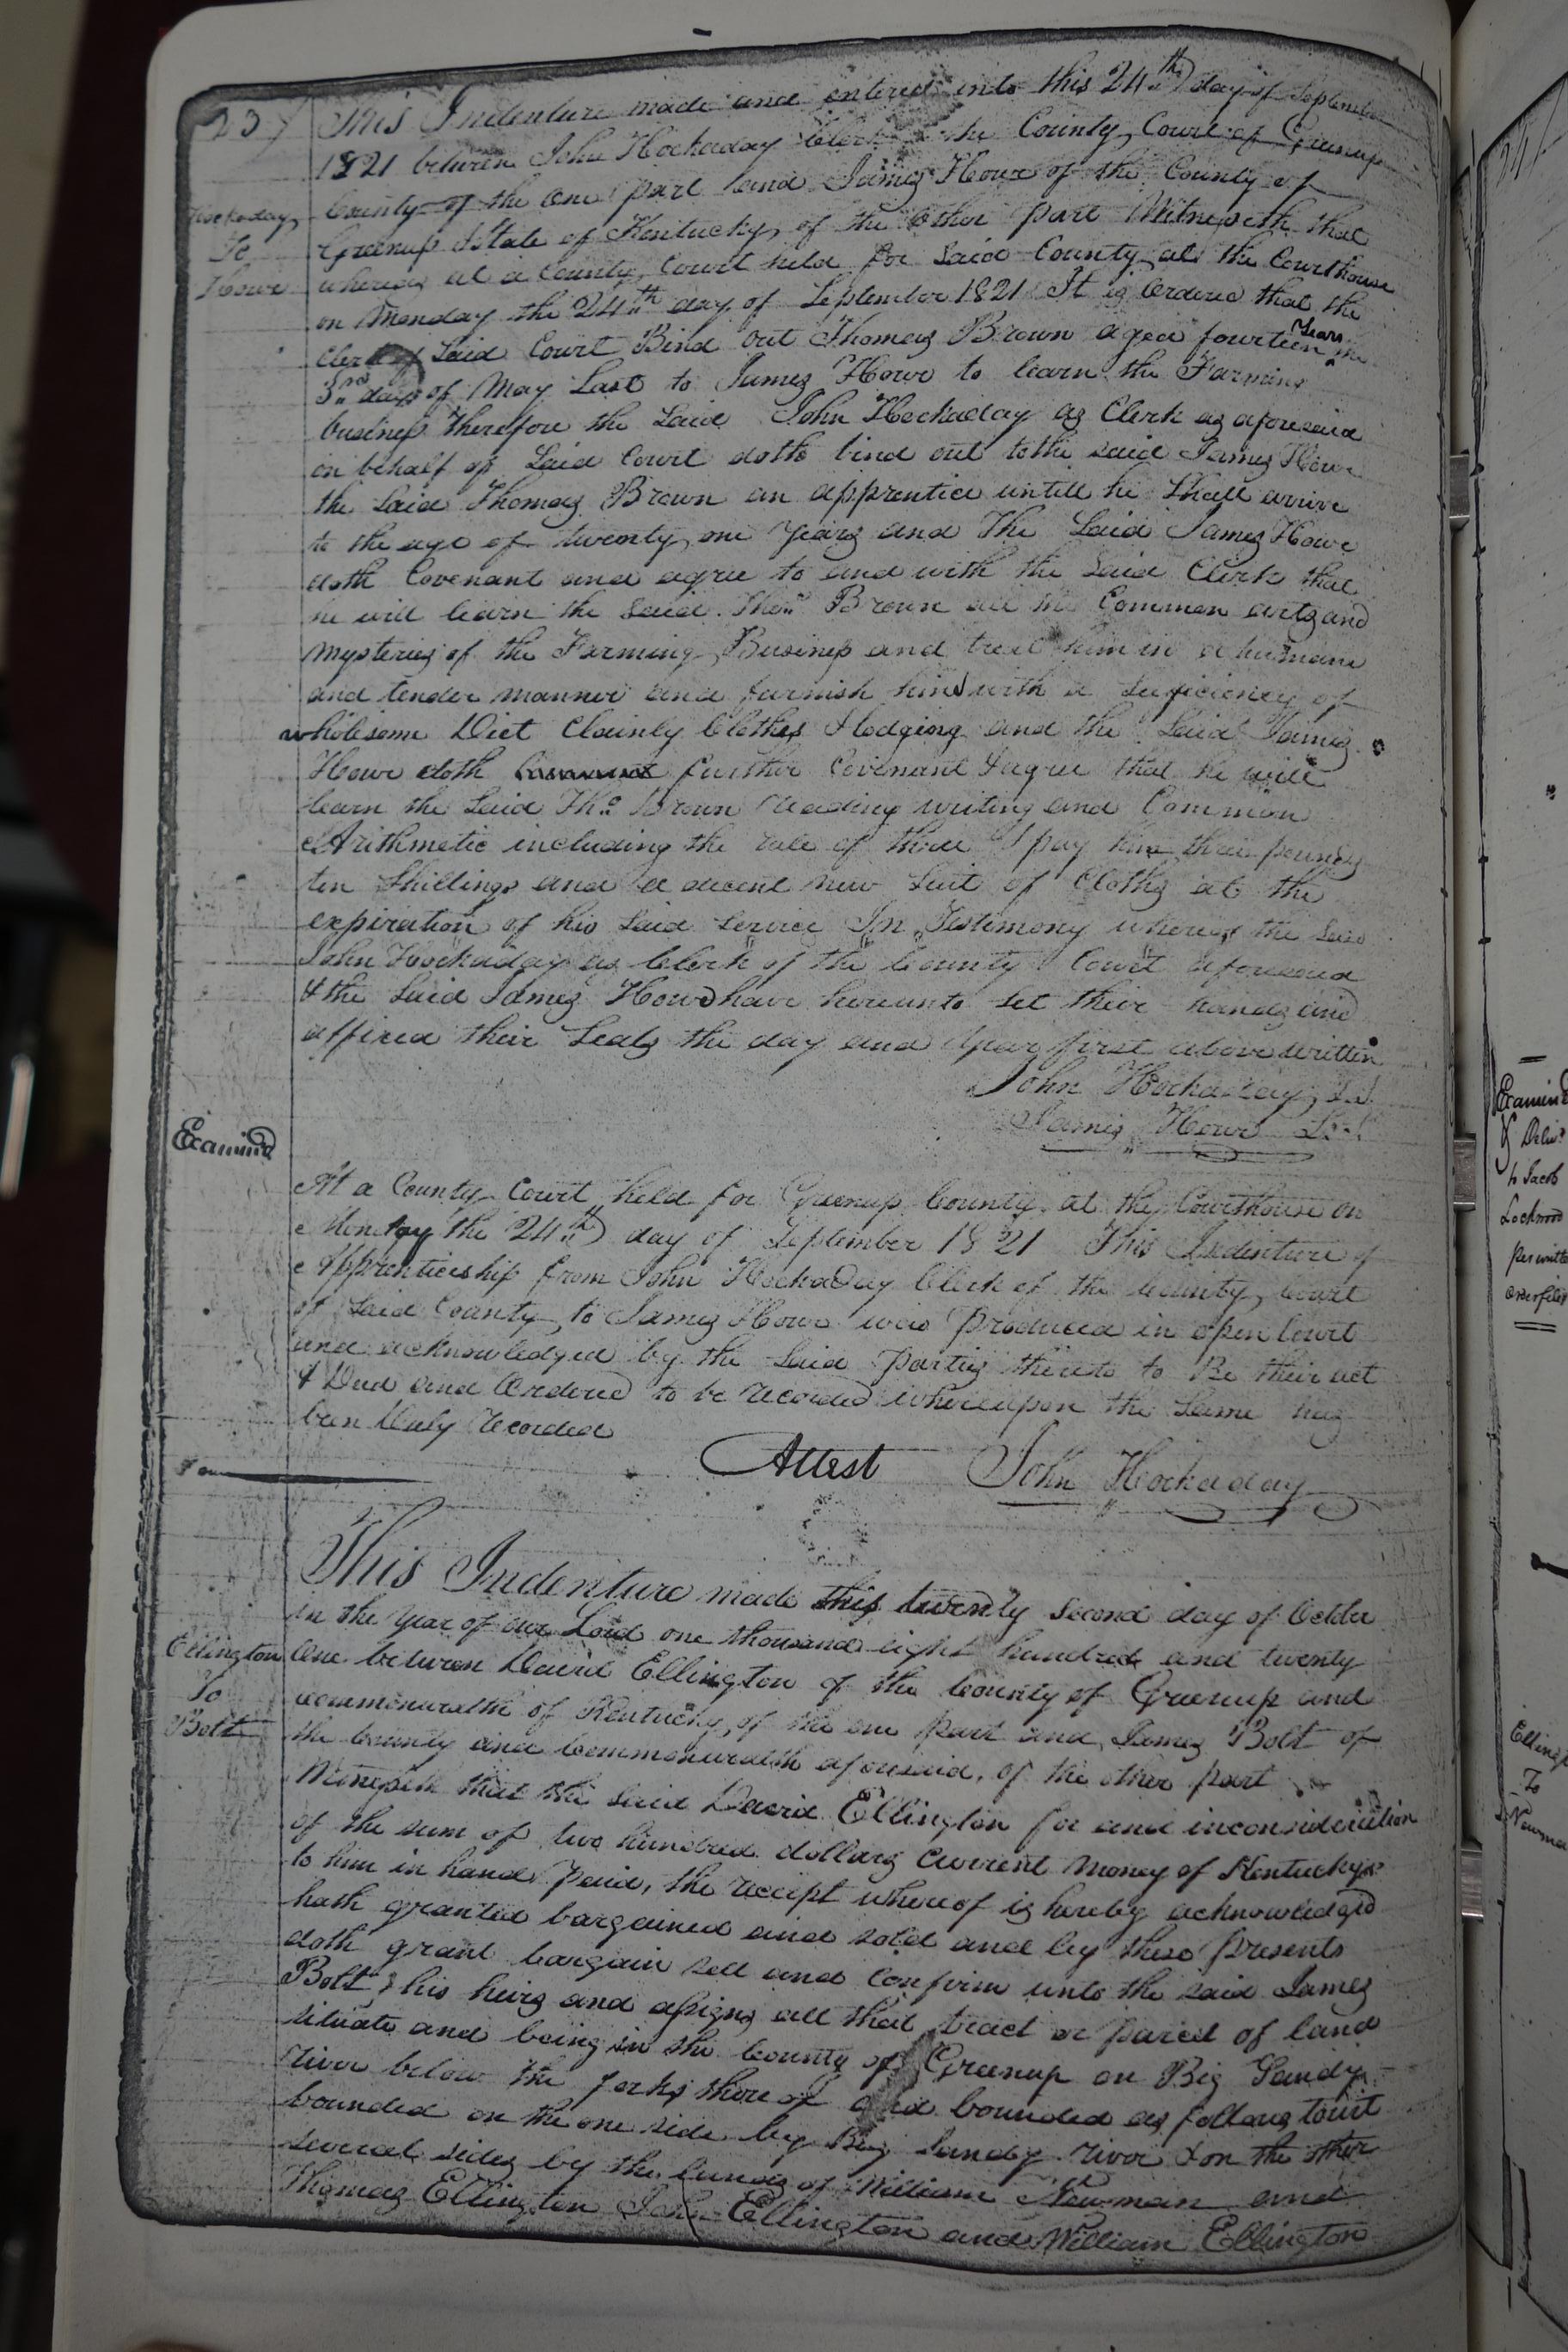 237
This Indenture made and entered into this 24th day of September
1821 between John Hockaday Clerk the County Court of Greenup
County of the one part and James Howe of the County of
Hockaday
To
Howe
Greenup & State of Kentucky of the other part Witnesseth that
whereas at a County Court held for said County at the Courthouse
on Monday the 24th day of September 1821 It is ordered that the
Clerk of said Court Bind out Thomas Brown aged fourteen Years the
3rd day of May Last to James Howe to learn the Farming
business therefore the said John Hockaday as Clerk as aforesaid
in behalf of said Court doth bind out to the said James Howe
the said Thomas Brown an apprentice untill he shall arrive
to the age of twenty one years and The said James Howe
doth Covenant and agree to and with the said Clerk that
he will learn the said Thos Brown all the Common arts and
mysteries of the Farming Business and treat him in a humane
and tender manner and furnish him with a sufficiency of
wholesome Diet Cleanly Clothes & lodging and the said James
Howe doth further Covenant & agree that he will
learn the said Tho. Brown reading writing and Common
Arithmetic including the rule of three & pay him three pounds
ten shillings and a decent new suit of Cloths at the
expiration of his said service In Testimony whereof the said
John Hockaday as Clerk of the County Court aforesaid
& the said James Howe have hereunto set their hands and
affixed their seals the day and year first above written
John Hockaday
James Howe
Examind
At a County Court held for Greenup County at the Courthouse on
Monday the 24th day of September 1821 This Indenture of
Apprenticeship from John Hockaday Clerk of the County Court
of said County to James Howe was produced in open Court
and acknowledged by the said parties thereto to Be their act
& Deed and Ordered to be recorded whereupon the same has
been Duly recorded
Attest John Hockaday
This Indenture made this twenty second day of October
in the year of our Lord one thousand eight hundred and twenty
Ellington
To
Bolt
One between David Ellington of the County of Greenup and
commonwealth of Kentucky, of the one part and James Bolt of
the County and Commonwealth aforesaid, of the other part
Witnesseth that the said David Ellington for and in consideration
of the sum of two hundred dollars current money of Kentucky
to him in hand paid, the receipt whereof is hereby acknowledged
hath granted bargained and sold and by these presents
doth grant bargain sell and confirm unto the said James
Bolt his heirs and assigns all that tract or parcel of land
situate and being in the County of Greenup on Big Sandy
river below the forks thereof and bounded as follows towit
bounded on the one side by Big Sandy river & on the other
several sides by the lands of William Newman and
Thomas Ellington John Ellington and William Ellington
Examined
& Deliv'd
to Jacob
Lockwood
per
Ellingt
To
Newma